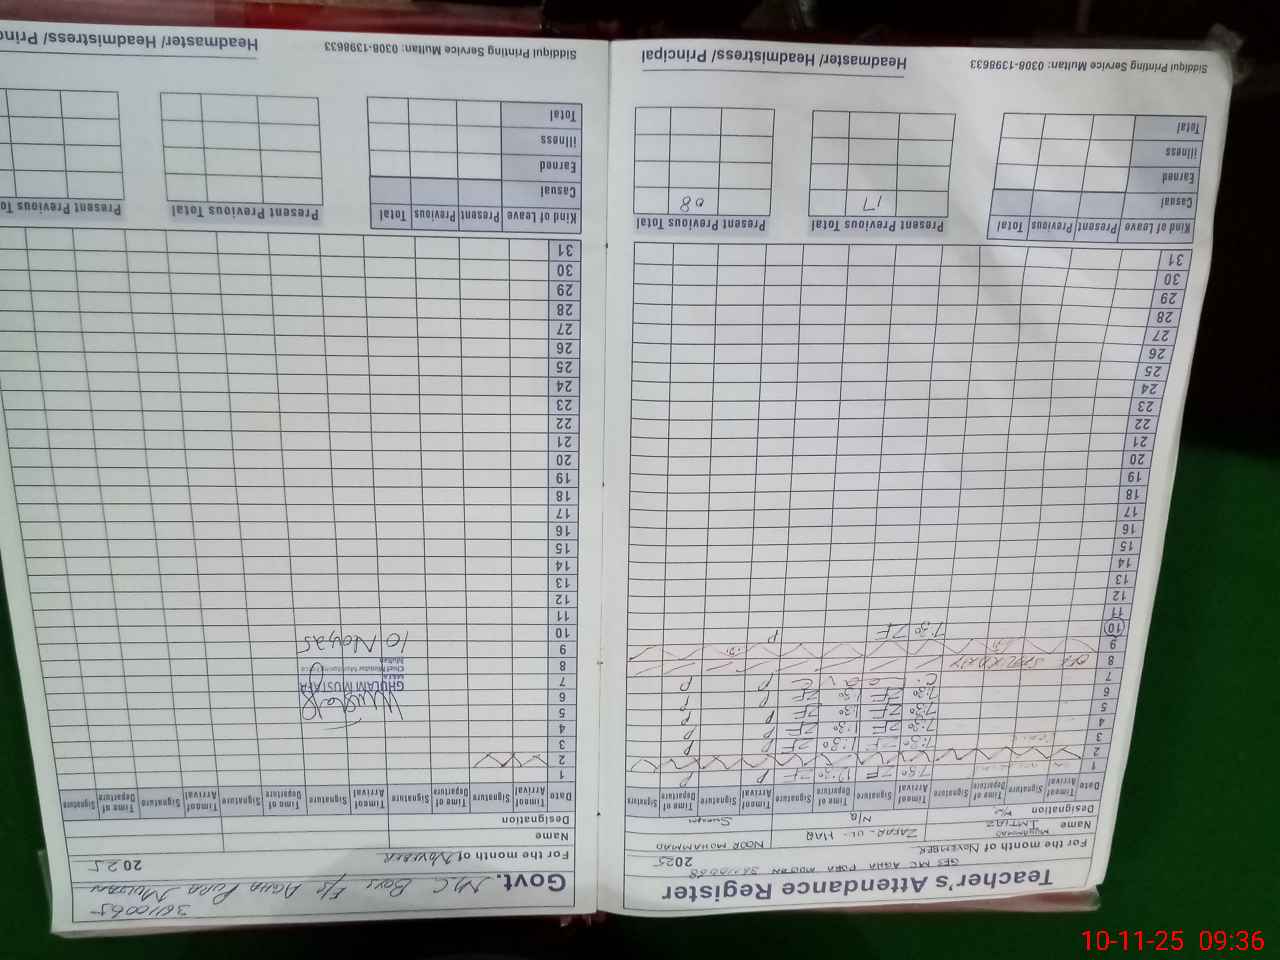 Teacher's Attendance Register
GES MC AGHA PURA MULTAN
For the month of NOVEMBER 2025
Name MUHAMMAD IMTIAZ ZAFAR-UL-HAQ NOOR MOHAMMAD
Designation N/Q
Date Timeof Arrival Signature Time of Departure Signature Timeof Arrival Signature Time of Departure Signature Timeof Arrival Signature Time of Departure Signature
1 7:30 ZF 12:30 ZF P P
2
3 7:30 ZF 1:30 ZF P P
4 7:30 ZF 1:30 ZF P P
5 7:30 ZF 1:30 ZF P P
6 7:30 ZF 1:30 ZF P P
7 P P
8
9
10 7:30 ZF P
11
12
13
14
15
16
17
18
19
20
21
22
23
24
25
26
27
28
29
30
31
Kind of Leave Present Previous Total Present Previous Total Present Previous Total
Casual 17 08
Earned
illness
Total
Siddiqui Printing Service Multan: 0308-1398633 Headmaster/ Headmistress/ Principal
36110065
Govt. M.C Boys E/S AGHA PURA MULTAN
For the month of NOVEMBER 2025
Name
Designation
Date Timeof Arrival Signature Time of Departure Signature Timeof Arrival Signature Time of Departure Signature Timeof Arrival Signature Time of Departure Signature
1
2
3
4
5
6 GHULAM MUSTAFA
7
8 Chief Minister Monitoring Force
Multan
9
10 10 Nov 25
11
12
13
14
15
16
17
18
19
20
21
22
23
24
25
26
27
28
29
30
31
Kind of Leave Present Previous Total Present Previous Total Present Previous To
Casual
Earned
illness
Total
Siddiqui Printing Service Multan: 0308-1398633 Headmaster/ Headmistress/ Princ
10-11-25 09:36